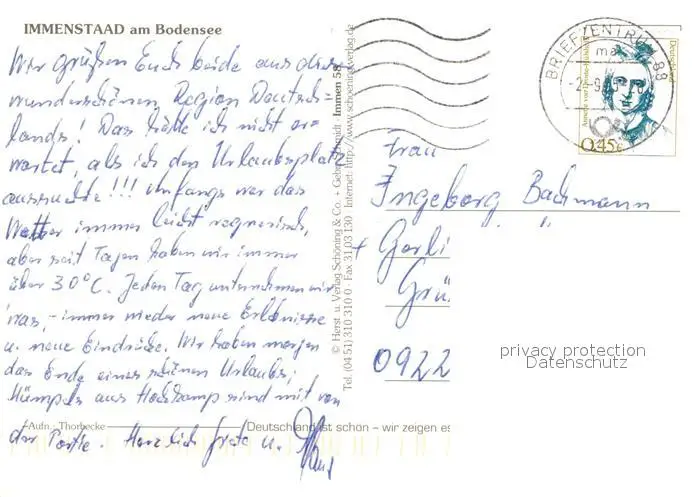 IMMENSTAAD am Bodensee
Wir grüßen Euch beide aus dieser
wunderschönen Region Deutsch=
lands! Das hätte ich nicht er=
wartet, als ich den Urlaubsplatz
aussuchte!!! Anfangs war das
Wetter immer leicht regnerisch,
aber seit Tagen haben wir immer
über 30°C. Jeden Tag unternehmen wir
was, - immer wieder neue Erlebnisse
u. neue Eindrücke. Wir haben morgen
das Ende eines schönen Urlaubs;
Hümpels aus sind mit von
der Partie. Herzlich grüße u.
Aufn.: Thorbecke
Deutschland ist schön – wir zeigen es
© Herst. u. Verlag Schöning & Co. + Gebr. Schmidt · Immen 58
Tel. (04 51) 310 310 0 · Fax 31 03 130 · Internet: http://www.schoening-verlag.de
BRIEFZENTRUM 88
Deutschland
0,45€
Frau
Ingeborg Bachmann
+ Gerli
Grü
0922
privacy protection
Datenschutz